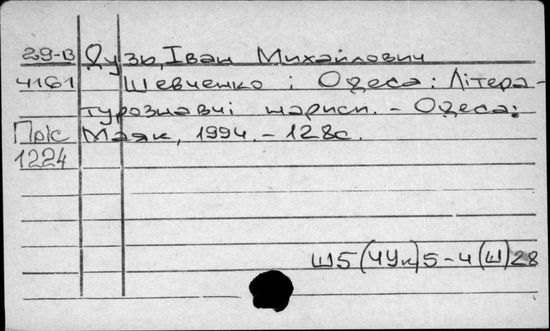 29-В Дузь, Іван Михайлович
4161 Шевченко і Одеса: Літера-
турознавчі нариси. - Одеса:
Пріс Маяк, 1994. - 128с.
1224
Ш5(4Ук)5-4(Ш)28